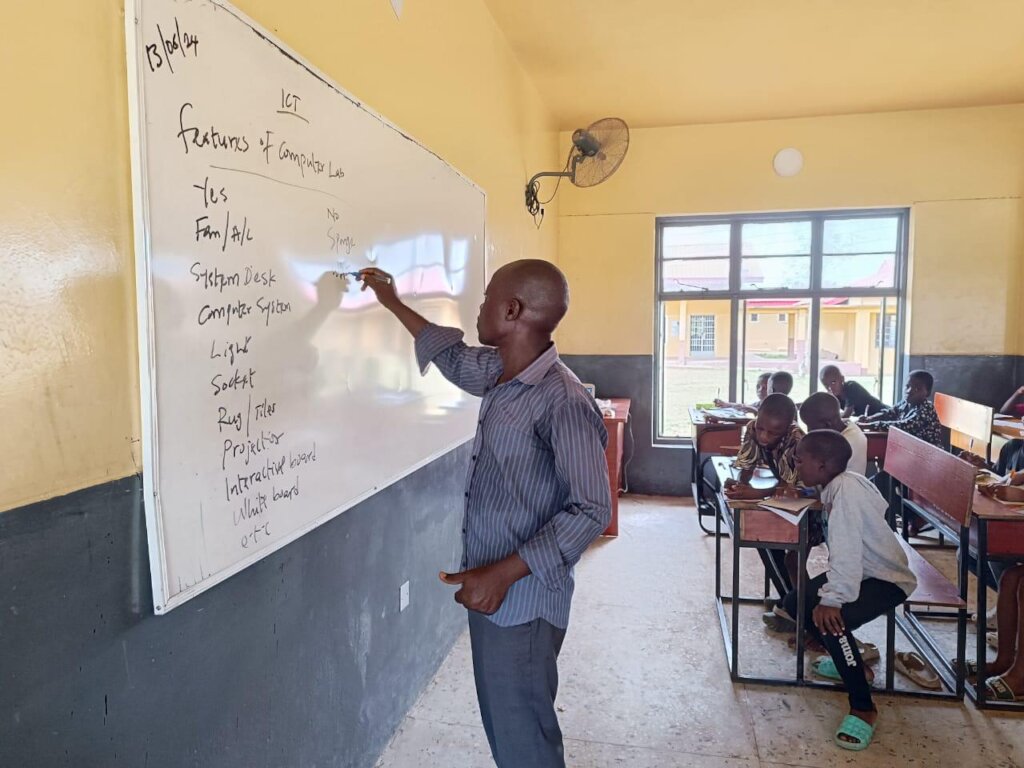 13/06/24
ICT
Features of Computer Lab
Yes
No
Fan/A/C
Sponge
System Desk
Computer System
Light
Socket
Rug/Tiles
Projector
Interactive board
White board
e.t.c
JOMA